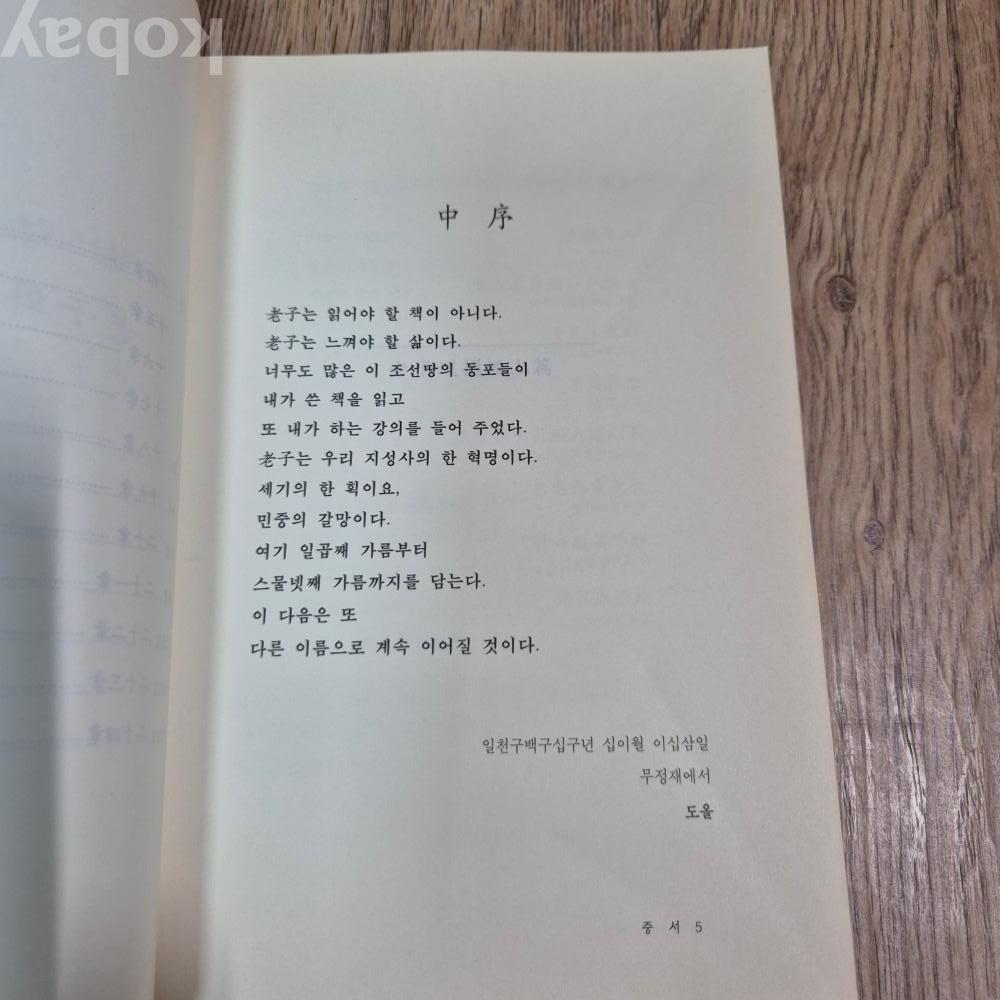 kobay
中 序
老子는 읽어야 할 책이 아니다.
老子는 느껴야 할 삶이다.
너무도 많은 이 조선땅의 동포들이
내가 쓴 책을 읽고
또 내가 하는 강의를 들어 주었다.
老子는 우리 지성사의 한 혁명이다.
세기의 한 획이요,
민중의 갈망이다.
여기 일곱째 가름부터
스물넷째 가름까지를 담는다.
이 다음은 또
다른 이름으로 계속 이어질 것이다.
일천구백구십구년 십이월 이십삼일
무정재에서
도올
중 서 5